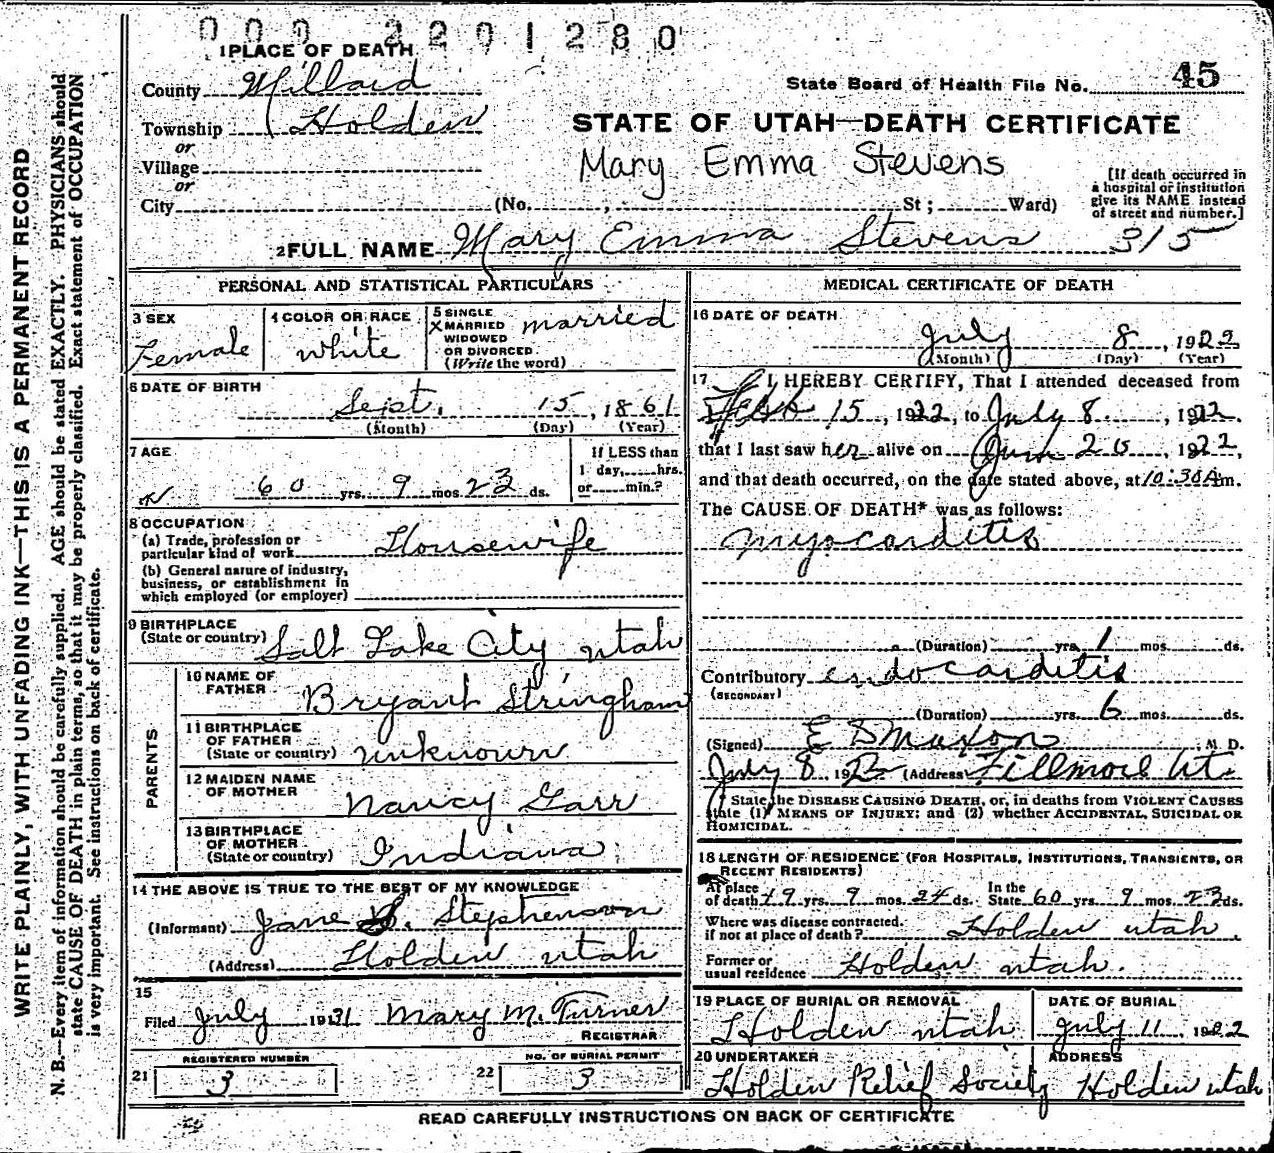 000 2201280
1 PLACE OF DEATH
County Millard
State Board of Health File No. 45
Township Holden
or
STATE OF UTAH—DEATH CERTIFICATE
Village
or
Mary Emma Stevens
City (No. , St; Ward)
[If death occurred in
a hospital or institution
give its NAME instead
of street and number.]
2 FULL NAME Mary Emma Stevens 315
PERSONAL AND STATISTICAL PARTICULARS
3 SEX
Female
4 COLOR OR RACE
white
5 SINGLE
X MARRIED
WIDOWED
OR DIVORCED
(Write the word)
married
6 DATE OF BIRTH
Sept. 15, 1861
(Month) (Day) (Year)
7 AGE
60 yrs. 9 mos. 23 ds.
If LESS than
1 day,....hrs.
or......min.?
8 OCCUPATION
(a) Trade, profession or
particular kind of work Housewife
(b) General nature of industry,
business, or establishment in
which employed (or employer)
9 BIRTHPLACE
(State or country) Salt Lake City Utah
PARENTS
10 NAME OF
FATHER Bryant Stringham
11 BIRTHPLACE
OF FATHER
(State or country) unknown
12 MAIDEN NAME
OF MOTHER Nancy Garr
13 BIRTHPLACE
OF MOTHER
(State or country) Indiana
14 THE ABOVE IS TRUE TO THE BEST OF MY KNOWLEDGE
(Informant) Jane S. Stephenson
(Address) Holden Utah
15
Filed July 1931 Mary M. Turner
REGISTRAR
REGISTERED NUMBER
21 3
NO. OF BURIAL PERMIT
22 3
MEDICAL CERTIFICATE OF DEATH
16 DATE OF DEATH
July 8, 1922
(Month) (Day) (Year)
17 I HEREBY CERTIFY, That I attended deceased from
Feb 15, 1922, to July 8, 1922.
that I last saw her alive on June 20, 1922,
and that death occurred, on the date stated above, at 10:30 A m.
The CAUSE OF DEATH* was as follows:
myocarditis
(Duration) yrs. 1 mos. ds.
Contributory endocarditis
(SECONDARY)
(Duration) yrs. 6 mos. ds.
(Signed) E D Maxon, M. D.
July 8, 1922 (Address) Fillmore Ut.
* State the DISEASE CAUSING DEATH, or, in deaths from VIOLENT CAUSES
state (1) MEANS OF INJURY; and (2) whether ACCIDENTAL, SUICIDAL OR
HOMICIDAL.
18 LENGTH OF RESIDENCE (FOR HOSPITALS, INSTITUTIONS, TRANSIENTS, OR
RECENT RESIDENTS)
At place
of death 49 yrs. 9 mos. 24 ds.
In the
State 60 yrs. 9 mos. 23 ds.
Where was disease contracted.
if not at place of death? Holden Utah.
Former or
usual residence Holden Utah.
19 PLACE OF BURIAL OR REMOVAL
Holden Utah
DATE OF BURIAL
July 11 1922
20 UNDERTAKER
Holden Relief Society
ADDRESS
Holden Utah
READ CAREFULLY INSTRUCTIONS ON BACK OF CERTIFICATE
WRITE PLAINLY, WITH UNFADING INK—THIS IS A PERMANENT RECORD
N. B.—Every item of information should be carefully supplied. AGE should be stated EXACTLY. PHYSICIANS should
state CAUSE OF DEATH in plain terms, so that it may be properly classified. Exact statement of OCCUPATION
is very important. See instructions on back of certificate.